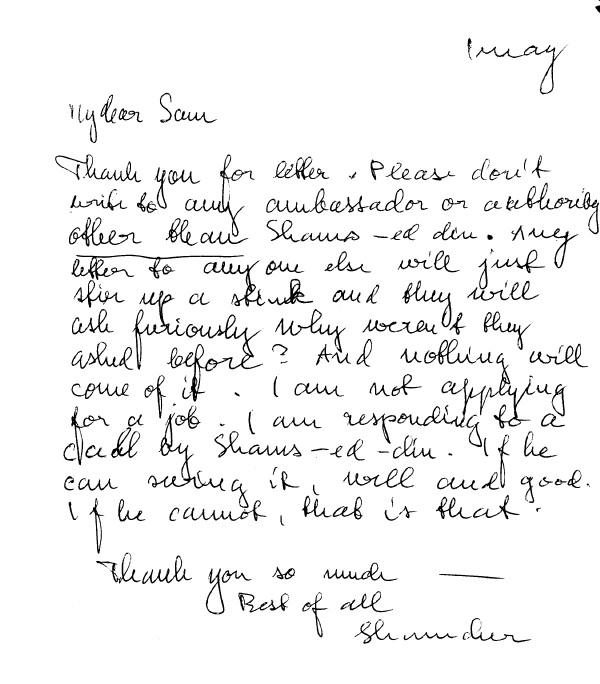 1 may
My dear Sam
Thank you for letter. Please don't
write to any ambassador or authority
other than Shams-ed din. Any
letter to anyone else will just
stir up a stink and they will
ask furiously why weren't they
asked before? And nothing will
come of it. I am not applying
for a job. I am responding to a
call by Shams-ed-din. If he
can swing it, well and good.
If he cannot, that is that.
Thank you so much —
Best of all